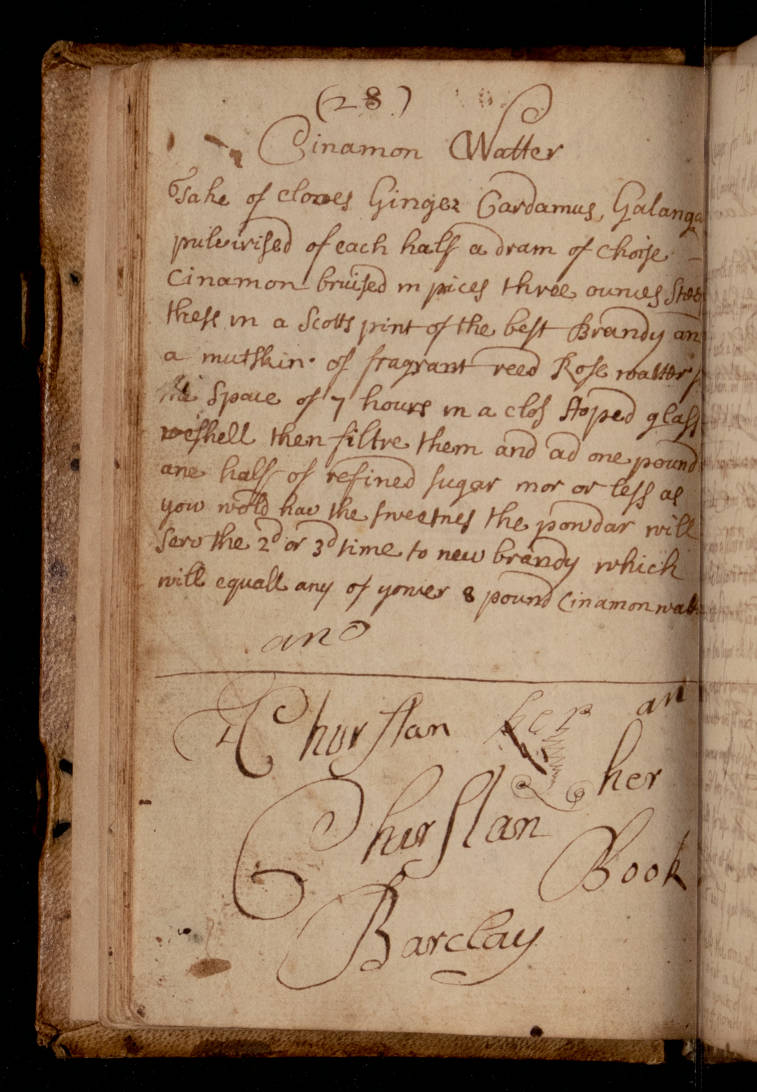 (28)
Cinamon Watter
Take of cloves Ginger Cardamus, Galanga
pulvirised of each half a dram of choise
Cinamon bruised in pices three ounces Steep
thess in a Scotts print of the best Brandy an
a mutskin of fragrant reed Rose watter
the space of 7 hours in a clos stoped glass
weshell then filtre them and ad one pound
ane half of refined sugar mor or less as
yow wold hav the sweetnes the powdar will
serv the 2d or 3d time to new brandy which
will equall any of yower 8 pound Cinamon watt
and
an
Churstan her
her
Churstan
Book
Barclay